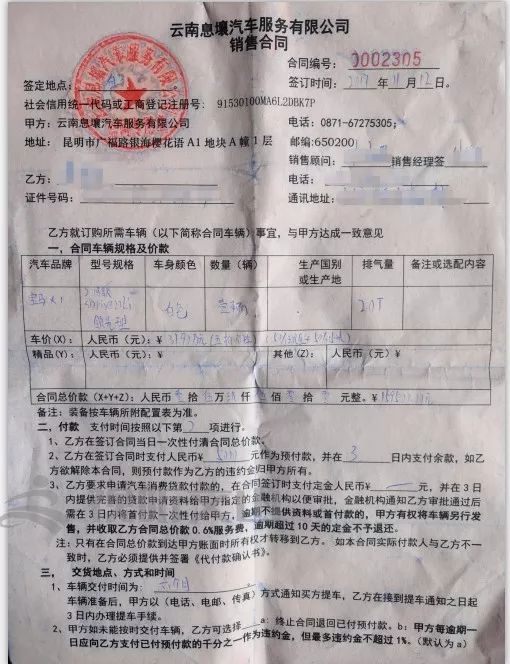 云南息壤汽车服务有限公司
销售合同
合同编号：0002305
签定地点：
签订时间：2019年11月12日。
社会信用统一代码或工商登记注册号：91530100MA6L2DBK7P
甲方：云南息壤汽车服务有限公司
电话：0871-67275305；
地址：昆明市广福路银海樱花语A1地块A幢1层
邮编:650200
销售顾问： 销售经理签
乙方：
电话：
证件号码：
通讯地址：
乙方就订购所需车辆（以下简称合同车辆）事宜，与甲方达成一致意见
一、合同车辆规格及价款
汽车品牌 型号规格 车身颜色 数量（辆） 生产国别或生产地 排气量 备注或选配内容
宝马X1 白色 壹辆 2.0T
车价(X)： 人民币（元）:￥
精品(Y)： 人民币（元）:￥ 其他(Z)： 人民币（元）￥
合同总价款（X+Y+Z）：人民币 叁 拾 万 仟 佰 拾 元整。￥
备注：装备按车辆所附配置表为准。
二、付款 支付时间按照以下第2项进行。
1、乙方在签订合同当日一次性付清合同总价款。
2、乙方在签订合同时支付人民币￥5000元作为预付款，并在3日内支付余款，如乙
方欲解除本合同，则预付款作为乙方的违约金归甲方所有。
3、乙方要求申请汽车消费贷款付款的，在合同签订时支付定金人民币 元，并在3日
内提供完善的贷款申请资料给甲方指定的金融机构以便审批，金融机构通知乙方审批通过后
需在3日内将首付款一次性付给甲方，逾期不提供资料或首付款的，甲方有权将车辆另行发
售，并收取乙方合同总价款0.6%服务费，逾期超过10天的定金不予退还。
注：只有在合同总价款到达甲方账面时所有权才转移到乙方。如本合同实际付款人与乙方不一
致时，乙方必须提供并签署《代付款确认书》。
三、 交货地点、方式和时间
1、车辆交付时间为：
车辆准备后，甲方以（电话、电邮、传真）方式通知买方提车，乙方在接到提车通知之日起
3日内办理提车手续。
2、甲方如未能按时交付车辆，乙方可选择 a：终止合同退回已付预付款。b：甲方每逾期一
日应向乙方支付已付预付款的千分之一作为违约金，但最多违约金不超过1%。（默认为a）